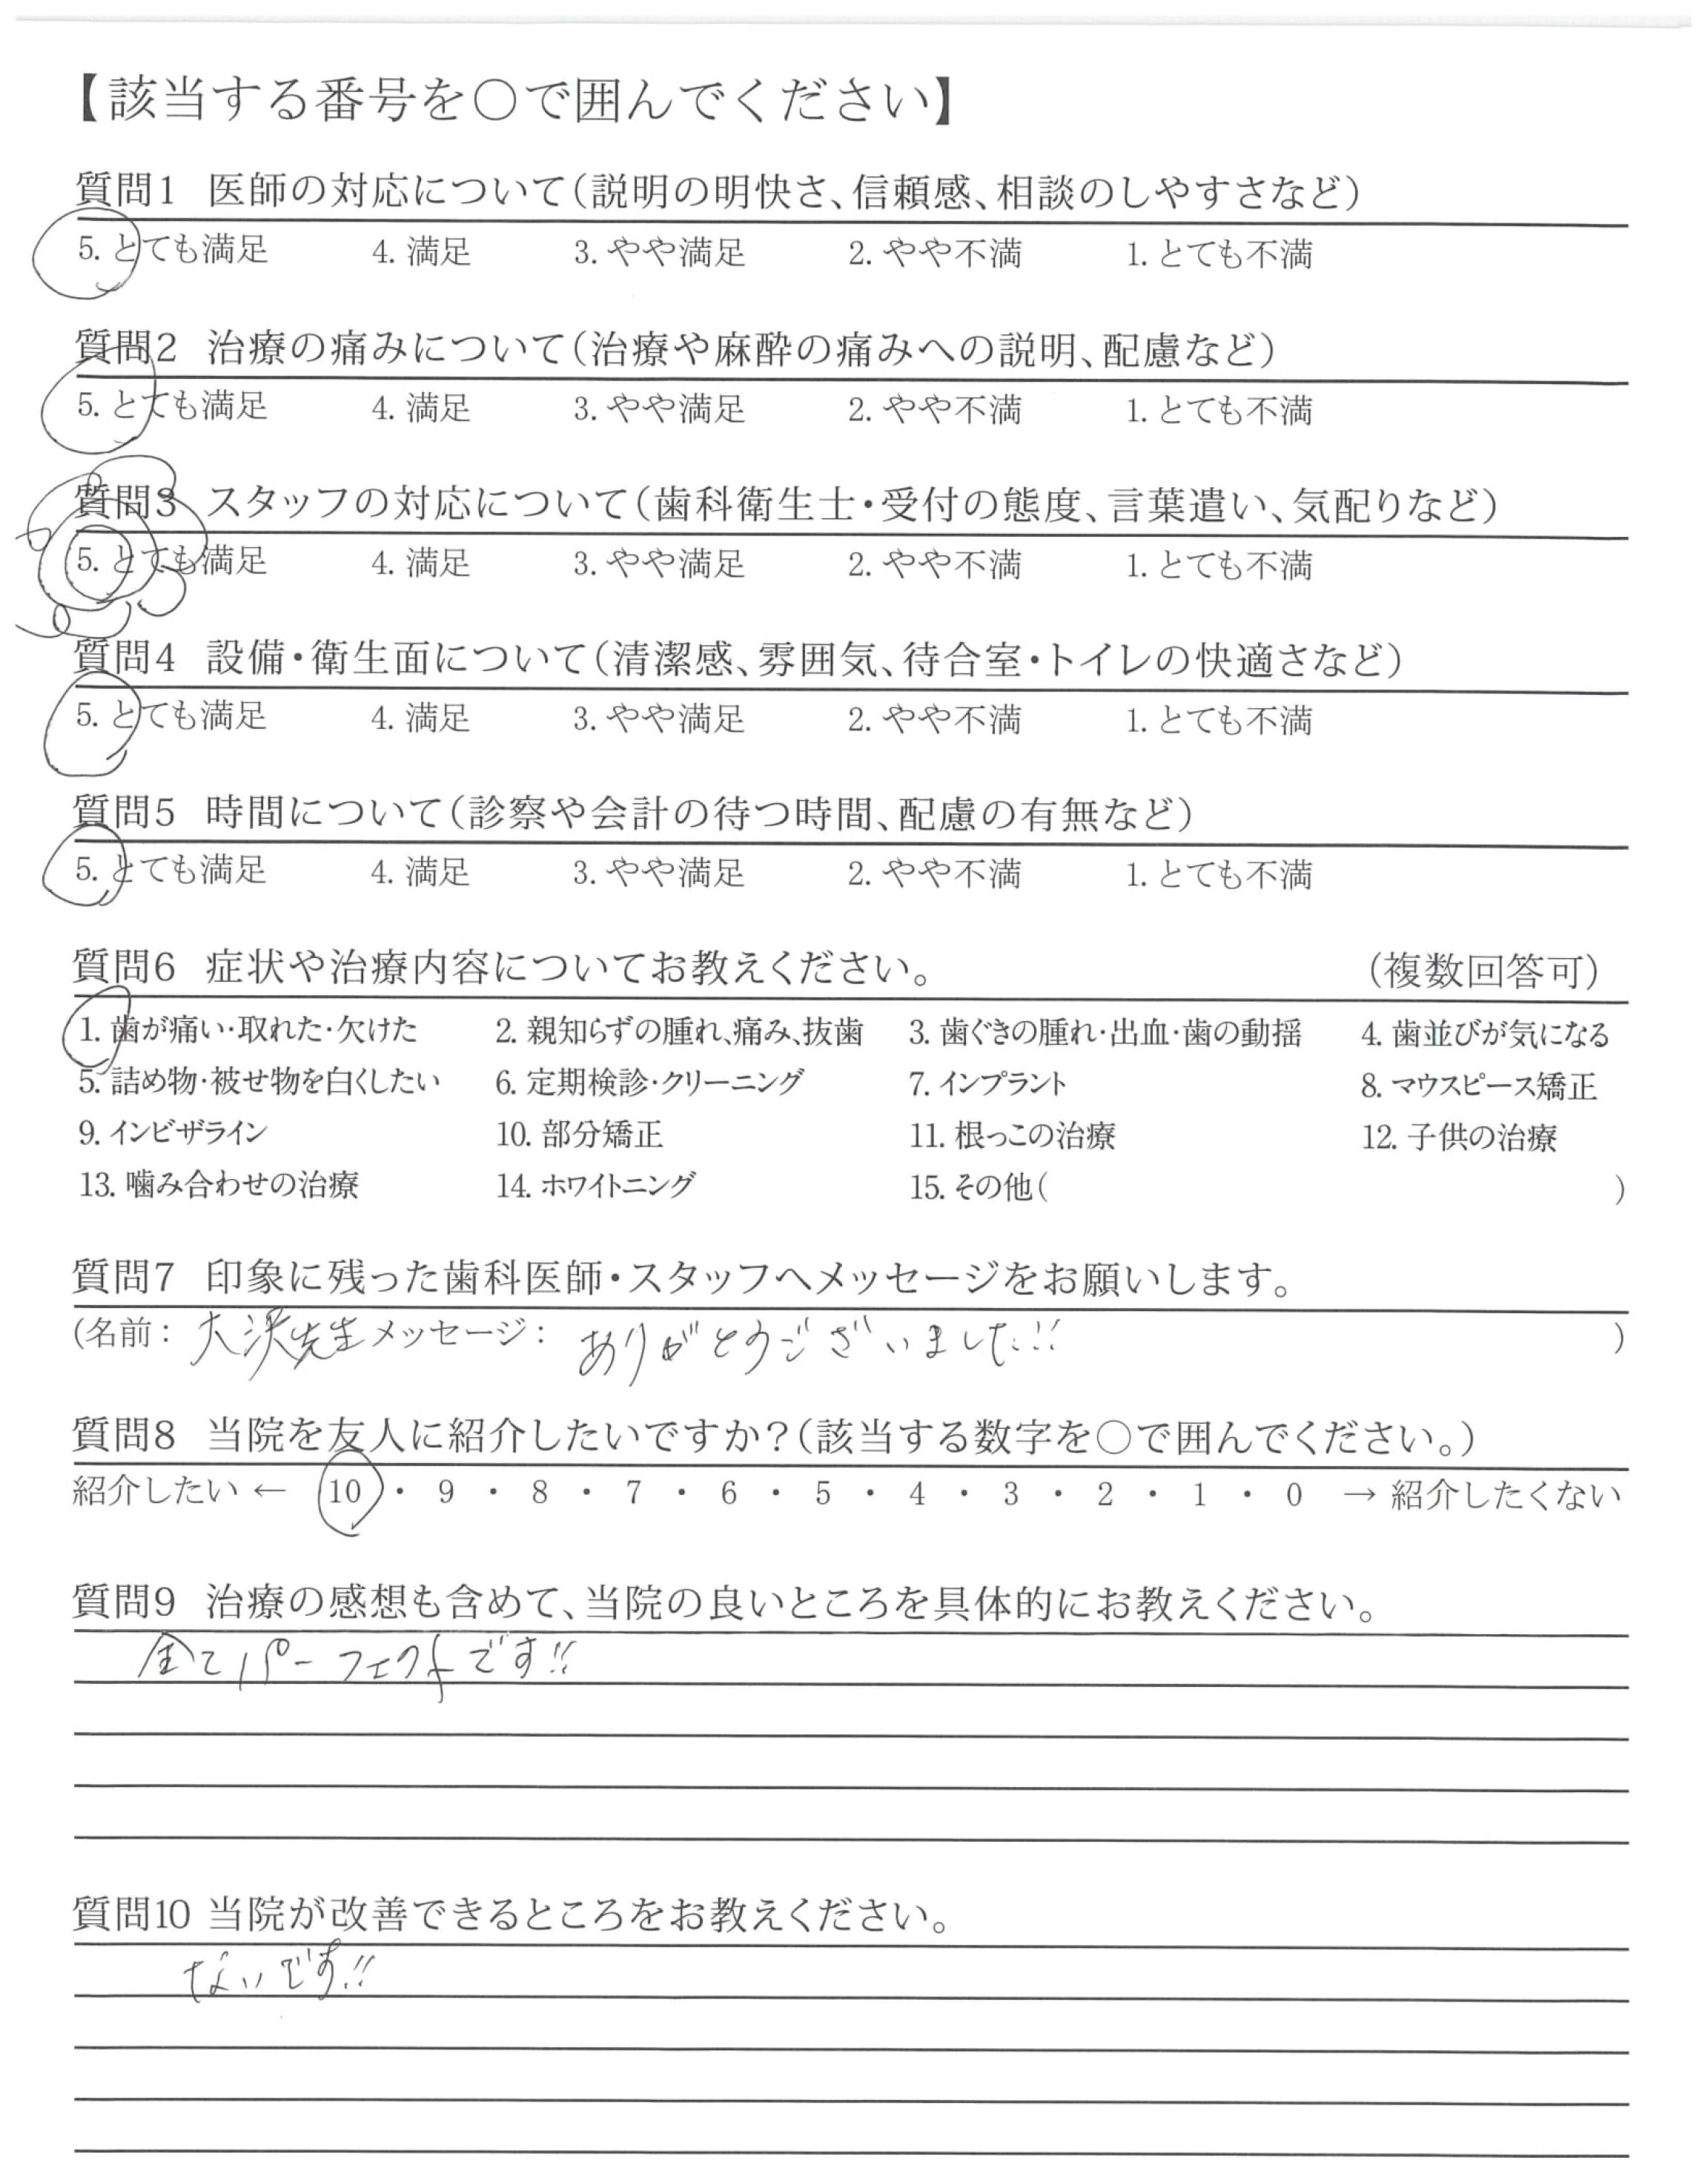 【該当する番号を○で囲んでください】
質問1 医師の対応について(説明の明快さ、信頼感、相談のしやすさなど)
5. とても満足 4. 満足 3. やや満足 2. やや不満 1. とても不満
質問2 治療の痛みについて(治療や麻酔の痛みへの説明、配慮など)
5. とても満足 4. 満足 3. やや満足 2. やや不満 1. とても不満
質問3 スタッフの対応について(歯科衛生士・受付の態度、言葉遣い、気配りなど)
5. とても満足 4. 満足 3. やや満足 2. やや不満 1. とても不満
質問4 設備・衛生面について(清潔感、雰囲気、待合室・トイレの快適さなど)
5. とても満足 4. 満足 3. やや満足 2. やや不満 1. とても不満
質問5 時間について(診察や会計の待つ時間、配慮の有無など)
5. とても満足 4. 満足 3. やや満足 2. やや不満 1. とても不満
質問6 症状や治療内容についてお教えください。 (複数回答可)
1. 歯が痛い・取れた・欠けた 2. 親知らずの腫れ、痛み、抜歯 3. 歯ぐきの腫れ・出血・歯の動揺 4. 歯並びが気になる
5. 詰め物・被せ物を白くしたい 6. 定期検診・クリーニング 7. インプラント 8. マウスピース矯正
9. インビザライン 10. 部分矯正 11. 根っこの治療 12. 子供の治療
13. 噛み合わせの治療 14. ホワイトニング 15. その他( )
質問7 印象に残った歯科医師・スタッフへメッセージをお願いします。
(名前: 大沢先生 メッセージ: ありがとうございました!! )
質問8 当院を友人に紹介したいですか?(該当する数字を○で囲んでください。)
紹介したい ← 10 ・ 9 ・ 8 ・ 7 ・ 6 ・ 5 ・ 4 ・ 3 ・ 2 ・ 1 ・ 0 → 紹介したくない
質問9 治療の感想も含めて、当院の良いところを具体的にお教えください。
全てパーフェクトです!!
質問10 当院が改善できるところをお教えください。
ないです!!